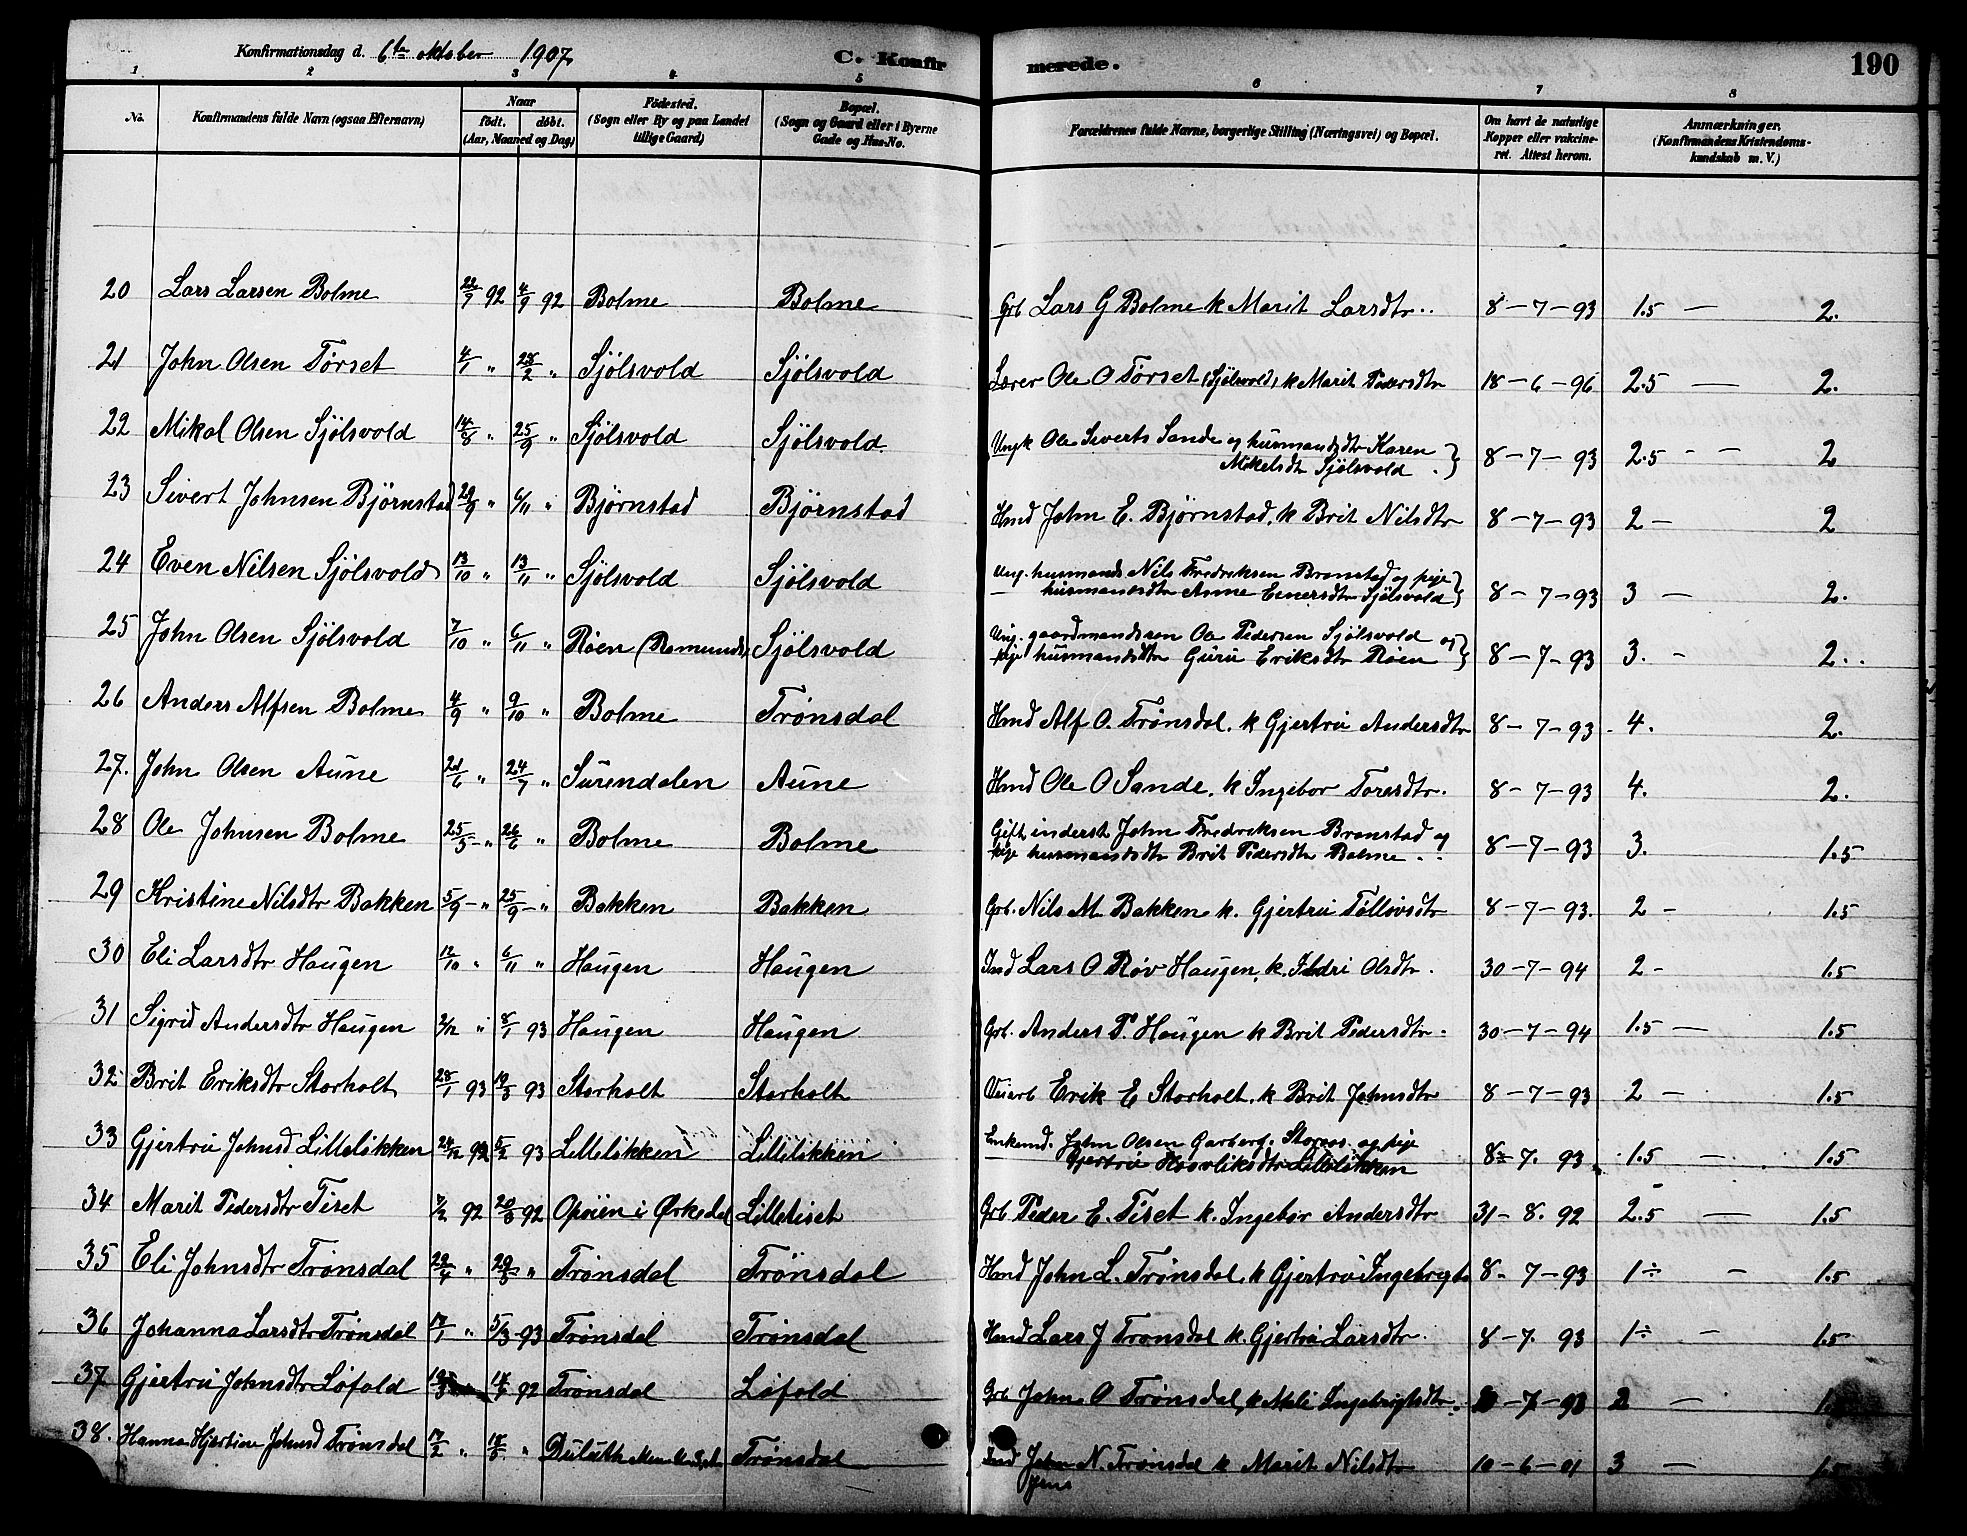 Konfirmationsdag d. 6te oktober 1907. C. Konfirmerede. 190
1 2 3 4 5 6 7 8
No. Konfirmandens fulde Navn (ogsaa Efternavn) Naar födt. döbt. (Aar, Maaned og Dag) Födested. (Sogn eller By og paa Landet tillige Gaard) Bopæl. (Sogn og Gaard eller i Byerne Gade og Hus-No. Forældrenes fulde Navne, borgerlige Stilling (Næringsvei) og Bopæl. Om havt de naturlige Kopper eller vakcineret. Attest herom. Anmærkninger. (Konfirmandens Kristendomskundskab m. V.)
20 Lars Larsen Bolme 22/7 92 4/9 92 Bolme Bolme Grb Lars G Bolme k Marit Larsdtr.. 8-7-93 1.5 — 2.
21 John Olsen Tørset 4/1 " 28/2 " Sjölsvold Sjölsvold Lærer Ole O Törset (Sjölsvold) k Marit Pedersdtr 18-6-96 2.5 — 2.
22 Mikal Olsen Sjölsvold 14/8 " 25/9 " Sjölsvold Sjölsvold. Ungk Ole Siverts Sande og husmandsdtr Karen
Mikelsdt Sjölsvold. } 8-7-93 2.5 - - 2
23 Sivert Johnsen Björnstad 29/9 " 6/11 " Björnstad Björnstad Hmd John E. Bjørnstad, k Brit Nilsdtr 8-7-93 2 - 2
24 Even Nilsen Sjölsvold 13/10 " 13/11 " Sjölsvold Sjölsvold Ung. husmands Nils Fredriksen Bronstad og pige
husmandsdtr Anne Einersdtr Sjölsvold } 8-7-93 3 — 2.
25 John Olsen Sjölsvold 7/10 " 6/11 " Röen (Romunds) Sjölsvold Ung. gaardmandssøn Ole Pedersen Sjölsvold og
pige husmandsdtr Guru Eriksdtr Röen } 8-7-93 3. - 2..
26 Anders Alfsen Bolme 4/9 " 9/10 " Bolme Trönsdal Hmd Alf O. Trönsdal. k Gjertru Andersdtr 8-7-93 4. 2.
27. John Olsen Aune 21/6 " 24/7 " Surendalen Aune Hmd Ole O Sande. k Ingebor Toresdtr. 8-7-93 4. 2.
28 Ole Johnsen Bolme 25/5 " 26/6 " Bolme Bolme Gift inderst John Fredriksen Bronstad og
pige husmandsdtr Brit Pedersdtr Bolme.. 8-7-93 3. 1.5
29 Kristine Nilsdtr Bakken 5/9 " 25/9 " Bakken Bakken Grb. Nils M. Bakken k. Gjertru Tøllövsdtr 8-7-93. 2 - 1.5
30 Eli Larsdtr Haugen 12/10 " 6/11 " Haugen Haugen Ind Lars O Röv Haugen, k. Ildri Olsdtr. 30-7-94 2 - 1.5
31 Sigrid Andersdtr Haugen 2/12 " 8/1 93 Haugen Haugen Grb. Anders P. Haugen k Brit Pedersdtr. 30-7-94 1.5 — 1.5
32 Brit Eriksdtr Storholt 28/1 93 19/3 93 Storholt Storholt Veiarb Erik E Storholt, k Brit Johnsdtr 8-7-93 2 - 1.5
33 Gjertru Johnsd Lilleløkken 24/12 92 5/2 93 Lilleløkken Lilleløkken Enkemd. John Olsen Garberg, Storaas og pige
Gjertru Lilleløkken 8-7. 93 1.5 — 1.5
34 Marit Pedersdtr Tiset 7/2 92 20/3 92 Opöien i Ørkedal Lilletiset Grb Peder E. Tiset k. Ingebor Andersdtr 31-8. 92 2.5 — 1.5
35 Eli Johnsdtr Trönsdal 22/4 " 29/5 " Trönsdal Trönsdal Hmd John L. Trönsdal, k Gjertru Ingebrigts 8-7-93 1÷ - 1.5
36 Johanna Larsdtr Trönsdal 17/1 " 5/3 93 Trönsdal Trönsdal Hmd Lars J Trönsdal k. Gjertru Larsdtr. 8-7. 93 1÷ - 1.5
37 Gjertru Johnsdtr Löfold 92 Trönsdal Löfold Grb John O Trönsdal, k Mali Ingebrigtsdtr. 2 —
38. Hanna Hjertine Johnsd Trönsdal 17/2 " " Duluth Trönsdal Ind John N. Trönsdal k Marit Nilsdtr 10-6-01 3 — 1.5
Jens